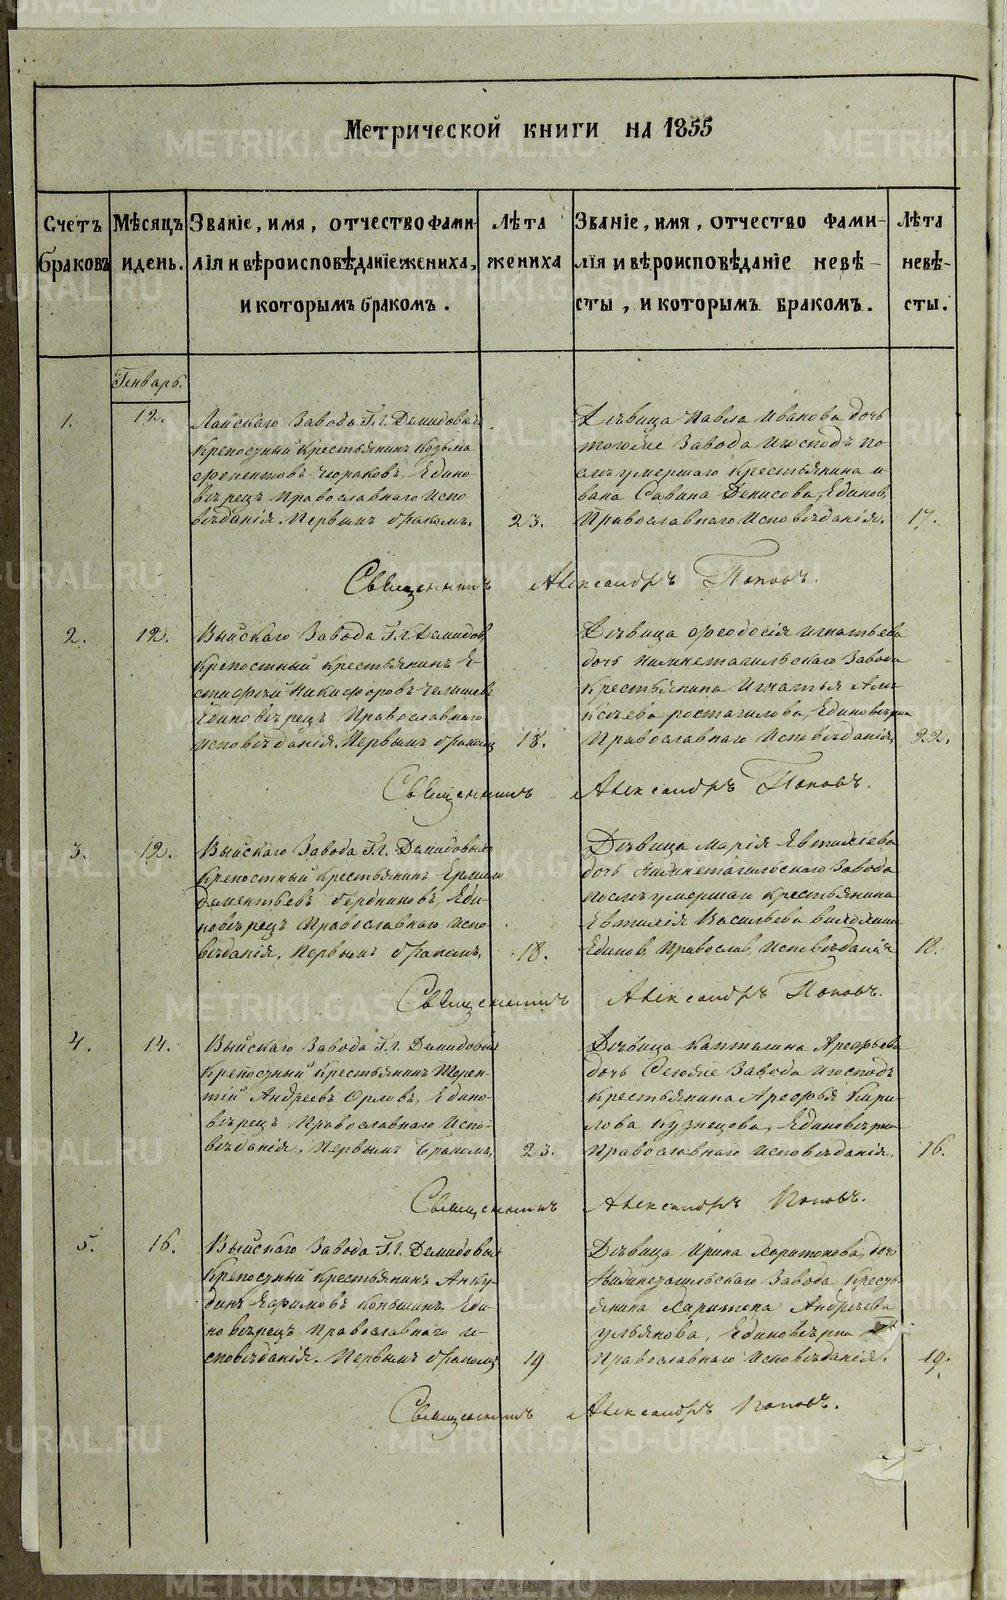 Метрической книги на 1855
Счетъ браковъ
Мѣсяцъ и день.
Званіе, имя, отчество фами-
лія и вѣроисповѣданіе жениха,
и которымъ бракомъ.
Лѣта жениха
Званіе, имя, отчество фами-
лія и вѣроисповѣданіе невѣ-
сты, и которымъ бракомъ.
Лѣта невѣ-
сты.
Генварь.
1.
12.
Лайскаго Завода Г.г. Демидовыхъ
крепостный крестьянинъ Козьма
Едино-
вѣрецъ Православнаго Испо-
вѣданія. Первымъ бракомъ.
23.
Дѣвица Павла Иванова дочь
тогоже Завода и господъ по-
слѣ умершаго крестьянина и-
вана Савина Денисова, Единов.
Православнаго Исповѣданія.
17.
Священникъ Александръ Поповъ.
2.
12.
Выйскаго Завода Г.г. Демидов.
крепостный крестьянинъ Е-
встифѣй Никифоровъ
Единовѣрецъ Православнаго
исповѣданія, Первымъ бракомъ
18.
Дѣвица Феодосія Игнатьева
дочь Нижнетагильскаго Завода
крестьянина Игнатья Але-
ксѣева Единовѣрка
Православнаго Исповѣданія.
22.
Священникъ Александръ Поповъ.
3.
12.
Выйскаго Завода Г.г. Демидовыхъ
крепостный крестьянинъ Ермило
Дементьевъ Бердниковъ, Еди-
новѣрецъ Православнаго Испо-
вѣданія. Первымъ бракомъ.
18.
Дѣвица Марія Евтихіева
дочь Нижнетагильскаго Завода
послѣ умершаго крестьянина
Евтихія Васильева
Единов. Православ. Исповѣданія
18.
Священникъ Александръ Поповъ.
4.
14.
Выйскаго Завода Г.г. Демидовыхъ
крепостный крестьянинъ Терен-
тій Андреевъ Орловъ, Едино-
вѣрецъ Православнаго Испо-
вѣданія, Первымъ Бракомъ.
23.
Дѣвица Капталина Арефьева
дочь Сегоже Завода и господъ
крестьянина Арефья Кири-
лова Кузнецова, Единовѣрка
Православнаго исповѣданія.
16.
Священникъ Александръ Поповъ.
5.
16.
Выйскаго Завода Г.г. Демидовыхъ
Крепостный крестьянинъ Анку-
динъ Ефимовъ Коньшинъ, Еди-
новѣрецъ Православнаго и-
сповѣданія. Первымъ бракомъ
19
Дѣвица Ирина Харитонова, дочь
Нижнетагильскаго Завода крест-
янина Харитона Андреева
Ульянова, Единовѣрка
Православнаго Исповѣданія.
19.
Священникъ Александръ Поповъ.
METRIKI.GASO-URAL.RU